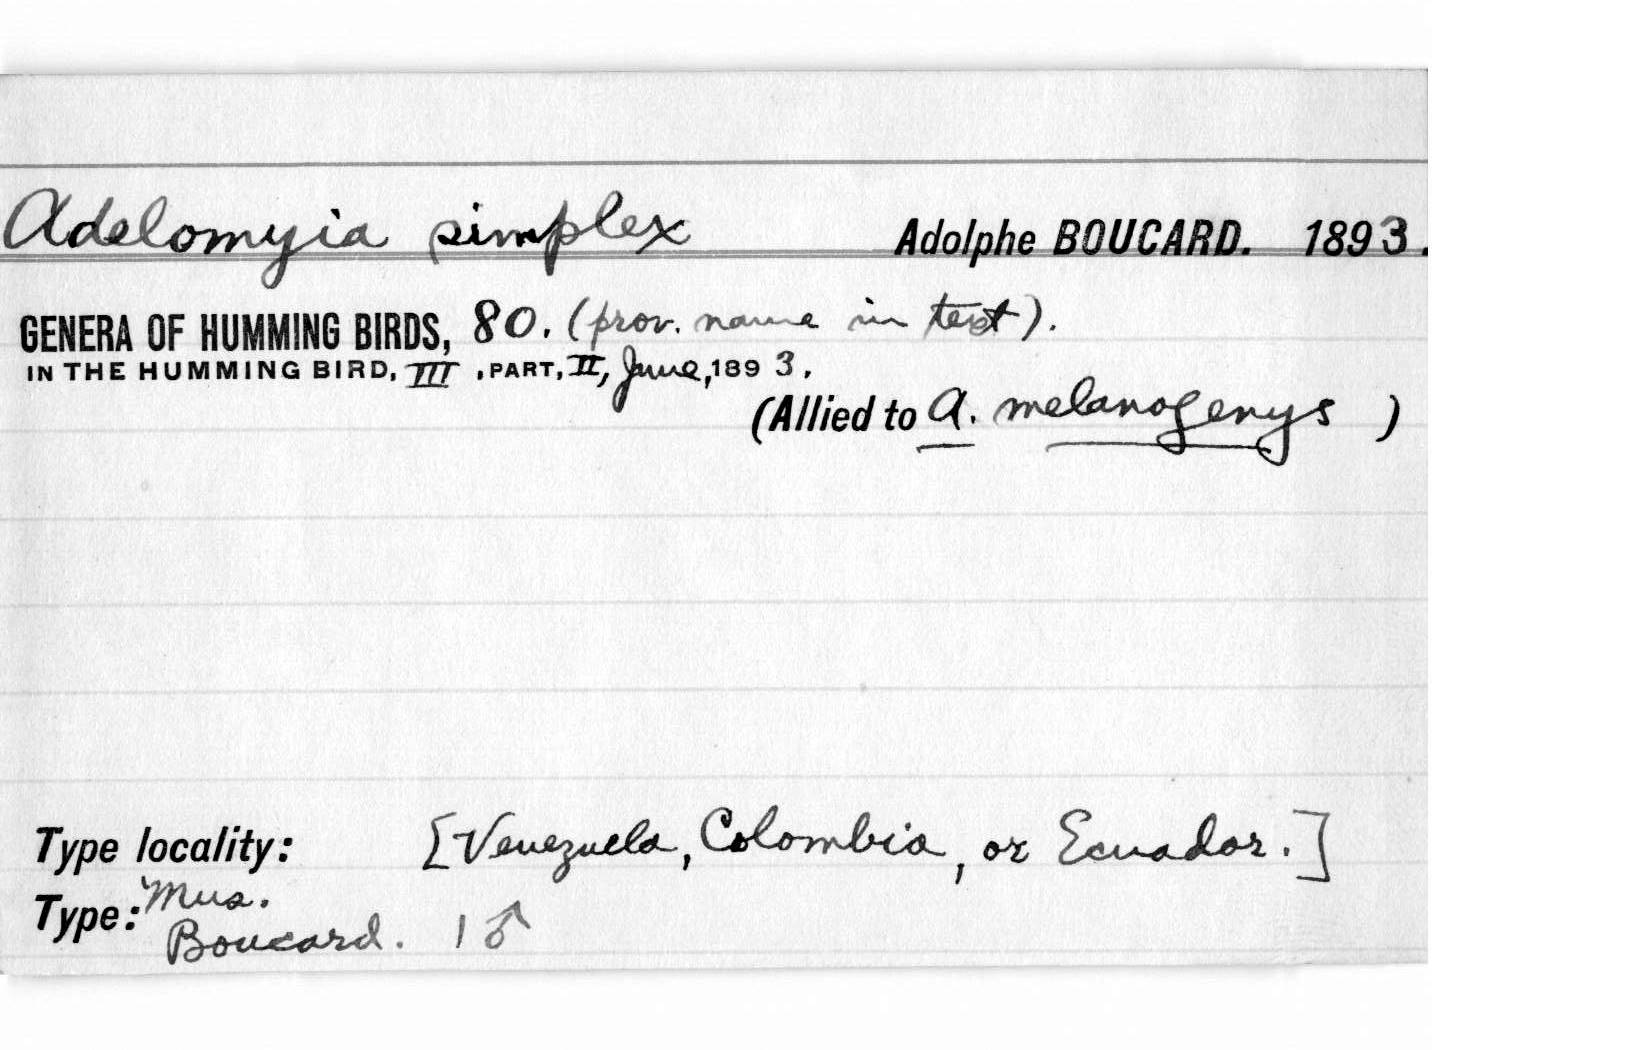 Adelomyia simplex Adolphe BOUCARD. 1893.
GENERA OF HUMMING BIRDS, 80. (prov. name in text).
IN THE HUMMING BIRD, III, PART, II, June, 1893.
(Allied to A. melanogenys )
Type locality: [Venezuela, Colombia, or Ecuador.]
Type: "Mus.
Boucard. 1 ♂